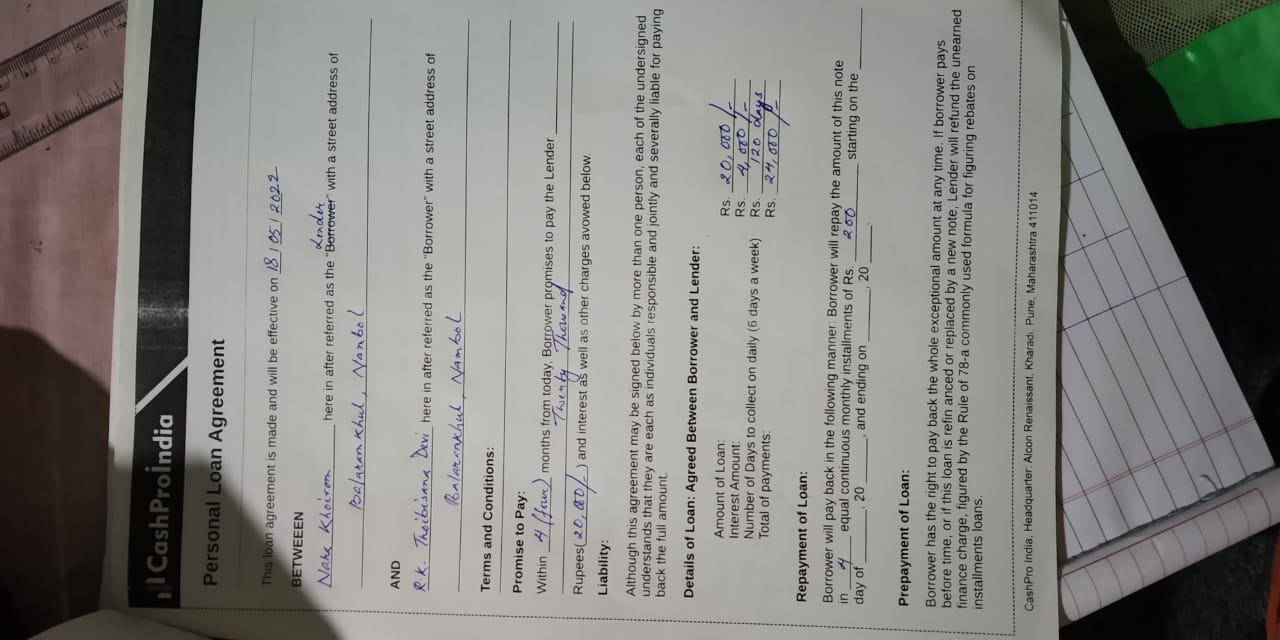 CashProindia
Personal Loan Agreement
This loan agreement is made and will be effective on 18/05/2022
BETWEEEN
Lender
Naha Khoirom here in after referred as the "Borrower" with a street address of
Balaramkhul, Nambol
AND
R.K. Thoibisana Devi here in after referred as the "Borrower" with a street address of
Balaramkhul, Nambol
Terms and Conditions:
Promise to Pay:
Within 4 (four) months from today, Borrower promises to pay the Lender
Twenty Thousand
Rupees( 20,000/- ) and interest as well as other charges avowed below.
Liability:
Although this agreement may be signed below by more than one person, each of the undersigned
understands that they are each as individuals responsible and jointly and severally liable for paying
back the full amount.
Details of Loan: Agreed Between Borrower and Lender:
Amount of Loan: Rs. 20,000/-
Interest Amount: Rs. 4,000/-
Number of Days to collect on daily (6 days a week) Rs. 120 days
Total of payments: Rs. 24,000/-
Repayment of Loan:
Borrower will pay back in the following manner: Borrower will repay the amount of this note
in 4 equal continuous monthly installments of Rs. 200 starting on the
day of , 20 , and ending on , 20 .
Prepayment of Loan:
Borrower has the right to pay back the whole exceptional amount at any time. If borrower pays
before time, or if this loan is refin anced or replaced by a new note, Lender will refund the unearned
finance charge, figured by the Rule of 78-a commonly used formula for figuring rebates on
installments loans.
CashPro India, Headquarter: Alcon Renaissant, Kharadi, Pune, Maharashtra 411014